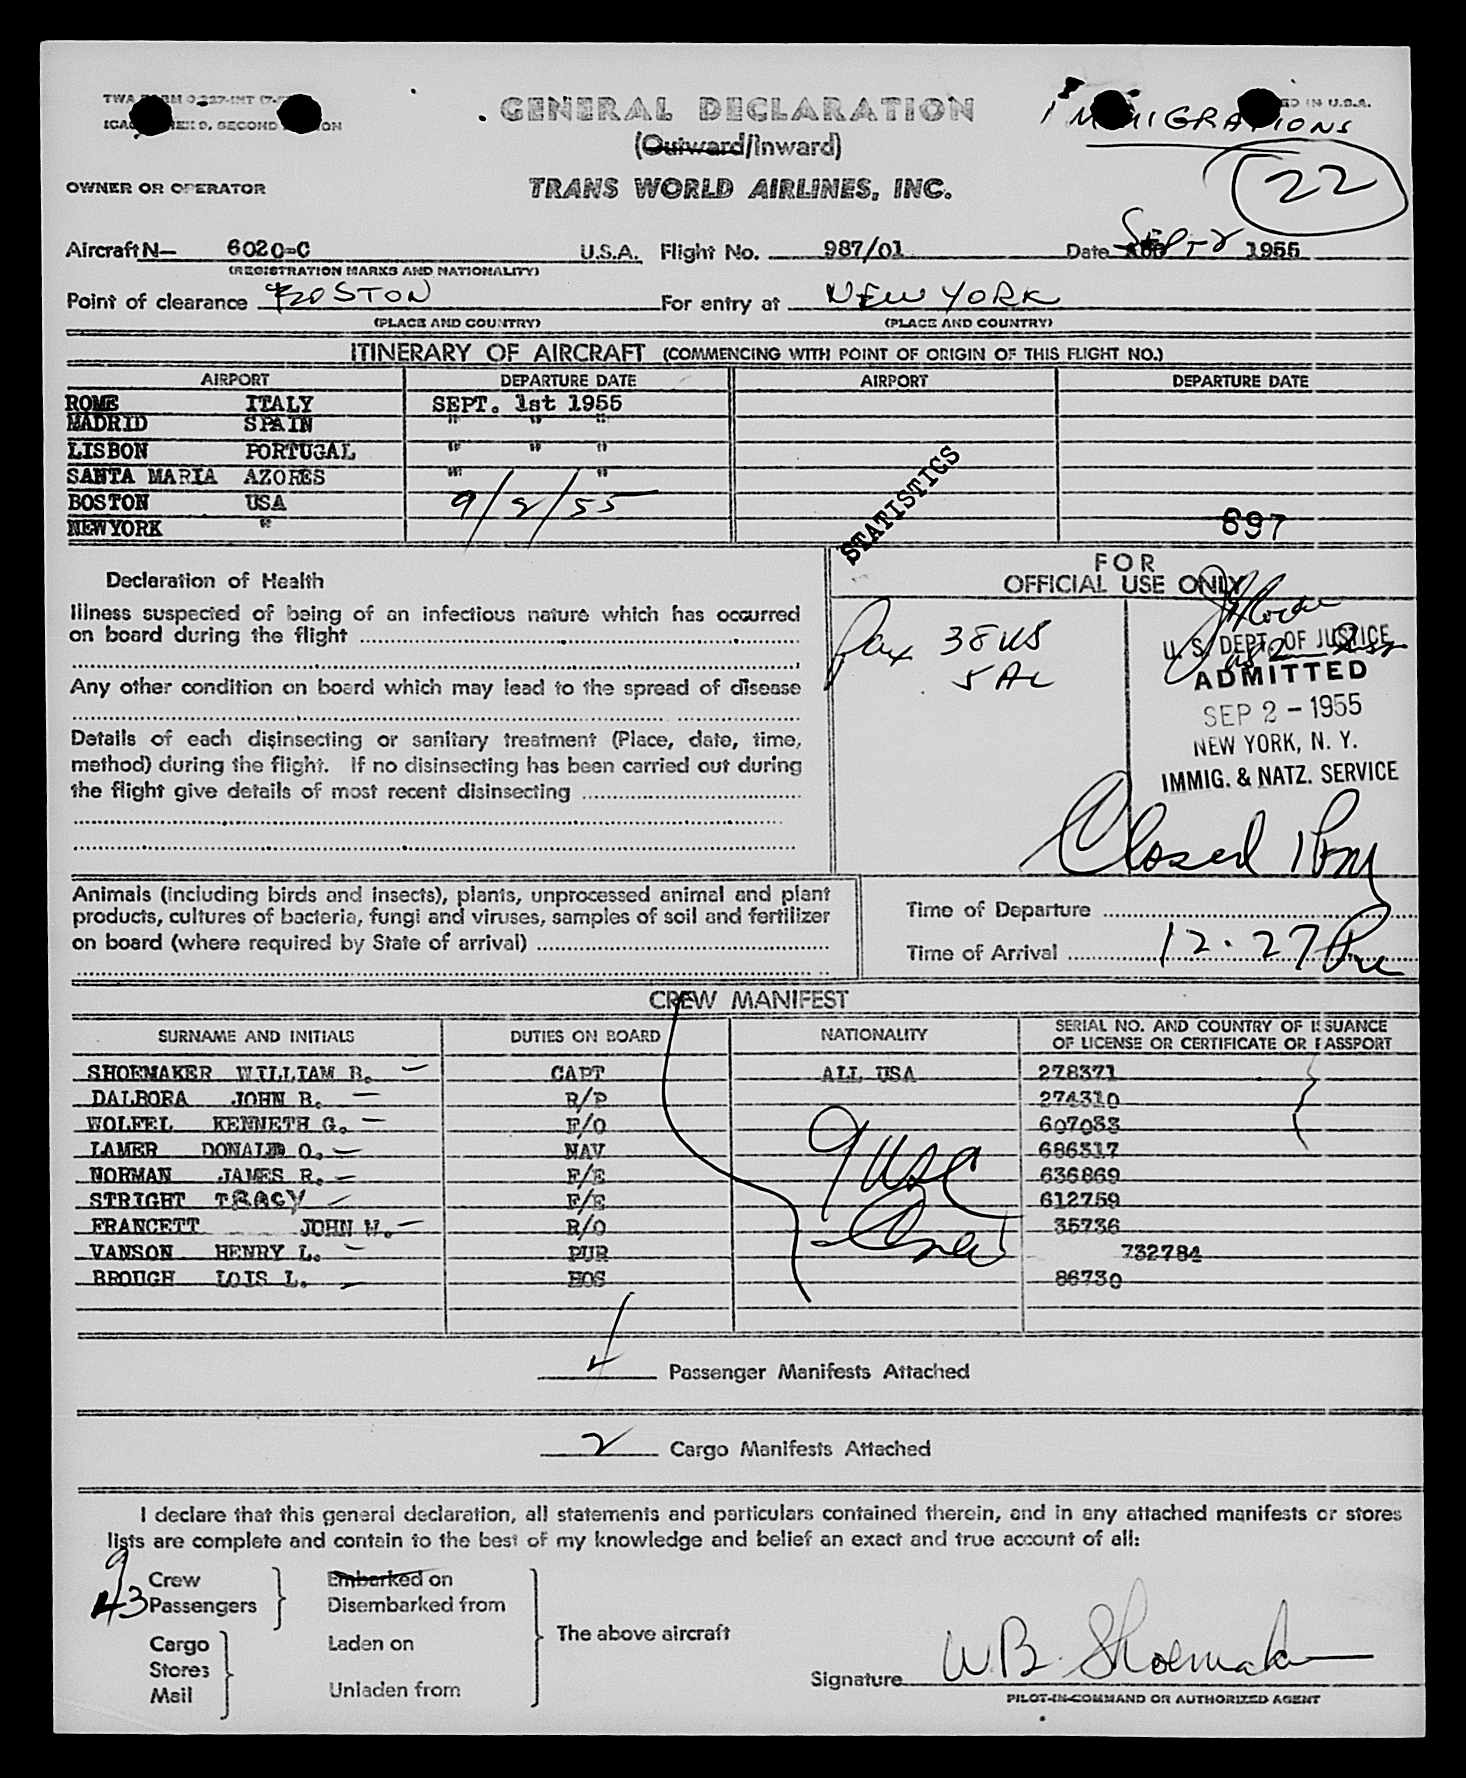 GENERAL DECLARATION
(Outward/Inward)
IMMIGRATIONS
22
OWNER OR OPERATOR TRANS WORLD AIRLINES, INC.
Aircraft N— 6020-C U.S.A. Flight No. 987/01 Date SEPT 2 1955
(REGISTRATION MARKS AND NATIONALITY)
Point of clearance BOSTON For entry at NEW YORK
(PLACE AND COUNTRY) (PLACE AND COUNTRY)
ITINERARY OF AIRCRAFT (COMMENCING WITH POINT OF ORIGIN OF THIS FLIGHT NO.)
AIRPORT DEPARTURE DATE AIRPORT DEPARTURE DATE
ROME ITALY SEPT. 1st 1955
MADRID SPAIN " " "
LISBON PORTUGAL " " "
SANTA MARIA AZORES " "
BOSTON USA 9/2/55
NEWYORK "
STATISTICS
697
Declaration of Health
Illness suspected of being of an infectious nature which has occurred
on board during the flight
Any other condition on board which may lead to the spread of disease
Details of each disinsecting or sanitary treatment (Place, date, time,
method) during the flight. If no disinsecting has been carried out during
the flight give details of most recent disinsecting
FOR
OFFICIAL USE ONLY
Pax 38 US
5 AL
U. S. DEPT. OF JUSTICE
ADMITTED
SEP 2 - 1955
NEW YORK, N. Y.
IMMIG. & NATZ. SERVICE
Closed 1 Pm
Animals (including birds and insects), plants, unprocessed animal and plant
products, cultures of bacteria, fungi and viruses, samples of soil and fertilizer
on board (where required by State of arrival)
Time of Departure
Time of Arrival 12.27 Pm
CREW MANIFEST
SURNAME AND INITIALS DUTIES ON BOARD NATIONALITY SERIAL NO. AND COUNTRY OF ISSUANCE
OF LICENSE OR CERTIFICATE OR PASSPORT
SHOEMAKER WILLIAM B. CAPT ALL USA 278371
DALBORA JOHN B. R/P 274310
WOLFEL KENNETH G. F/O 607033
LAMER DONALD O. NAV 686317
NORMAN JAMES R. F/E 636869
STRIGHT TRACY F/E 612759
FRANCETT JOHN W. R/O 35736
VANSON HENRY L. PUR 732784
BROUGH LOIS L. HOS 86730
9 USC
Closed
4 Passenger Manifests Attached
2 Cargo Manifests Attached
I declare that this general declaration, all statements and particulars contained therein, and in any attached manifests or stores
lists are complete and contain to the best of my knowledge and belief an exact and true account of all:
9 Crew Embarked on
43 Passengers Disembarked from
The above aircraft
Cargo Laden on
Stores
Mail Unladen from
Signature W.B. Shoemaker
PILOT-IN-COMMAND OR AUTHORIZED AGENT